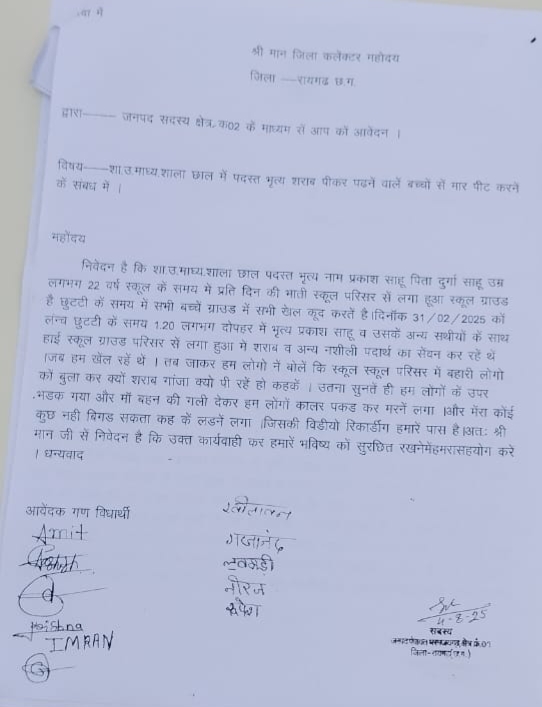 वा में
श्री मान जिला कलेक्टर महोदय
जिला ----रायगढ छ.ग.
द्वारा------- जनपद सदस्य क्षेत्र.क02 के माध्यम सें आप को आवेदन ।
विषय-----शा.उ.माध्य.शाला छाल में पदस्त भृत्य शराब पीकर पढनें वालें बच्चों सें मार पीट करनें
कें संबध में ।
महोंदय
निवेदन है कि शा.उ.माध्य.शाला छाल पदस्त भृत्य नाम प्रकाश साहू पिता दुर्गा साहू उम्र
लगभग 22 वर्ष स्कूल के समय में प्रति दिन की भाती स्कूल परिसर सें लगा हुआ स्कूल ग्राउड
है छुटटी के समय में सभी बच्चें ग्राउड में सभी खेल कूद करतें है।दिनॉक 31/02/2025 कों
लन्च छुटटी कें समय 1.20 लगभग दोपहर में भृत्य प्रकाश साहू व उसकें अन्य सथीयों कें साथ
हाई स्कूल ग्राउड परिसर सें लगा हुआ मे शराब व अन्य नशीली पदार्थ का सेंवन कर रहें थें
।जब हम खेंल रहें थें । तब जाकर हम लोगो नें बोंलें कि स्कूल स्कूल परिसर में बहारी लोगो
को बुला कर क्यों शराब गांजा क्यो पी रहें हो कहकें । उतना सुनतें ही हम लोगों कें उपर
.भडक गया और मॉ बहन की गली देकर हम लोगों कालर पकड कर मरनें लगा ।और मेंरा कोई
कुछ नही बिगड सकता कह कें लडनें लगा ।जिसकी विडीयो रिकार्डींग हमारें पास है।अतः श्री
मान जी सें निवेदन है कि उक्त कार्यवाही कर हमारें भबिष्य कों सुरछित रखनेमेंहमरासहयोग करें
। धन्यवाद
आवेंदक गण विधार्थी
Amit
Krishna
IMRAN
गजानंद
नीरज
रूपेश
4-8-25
सदस्य